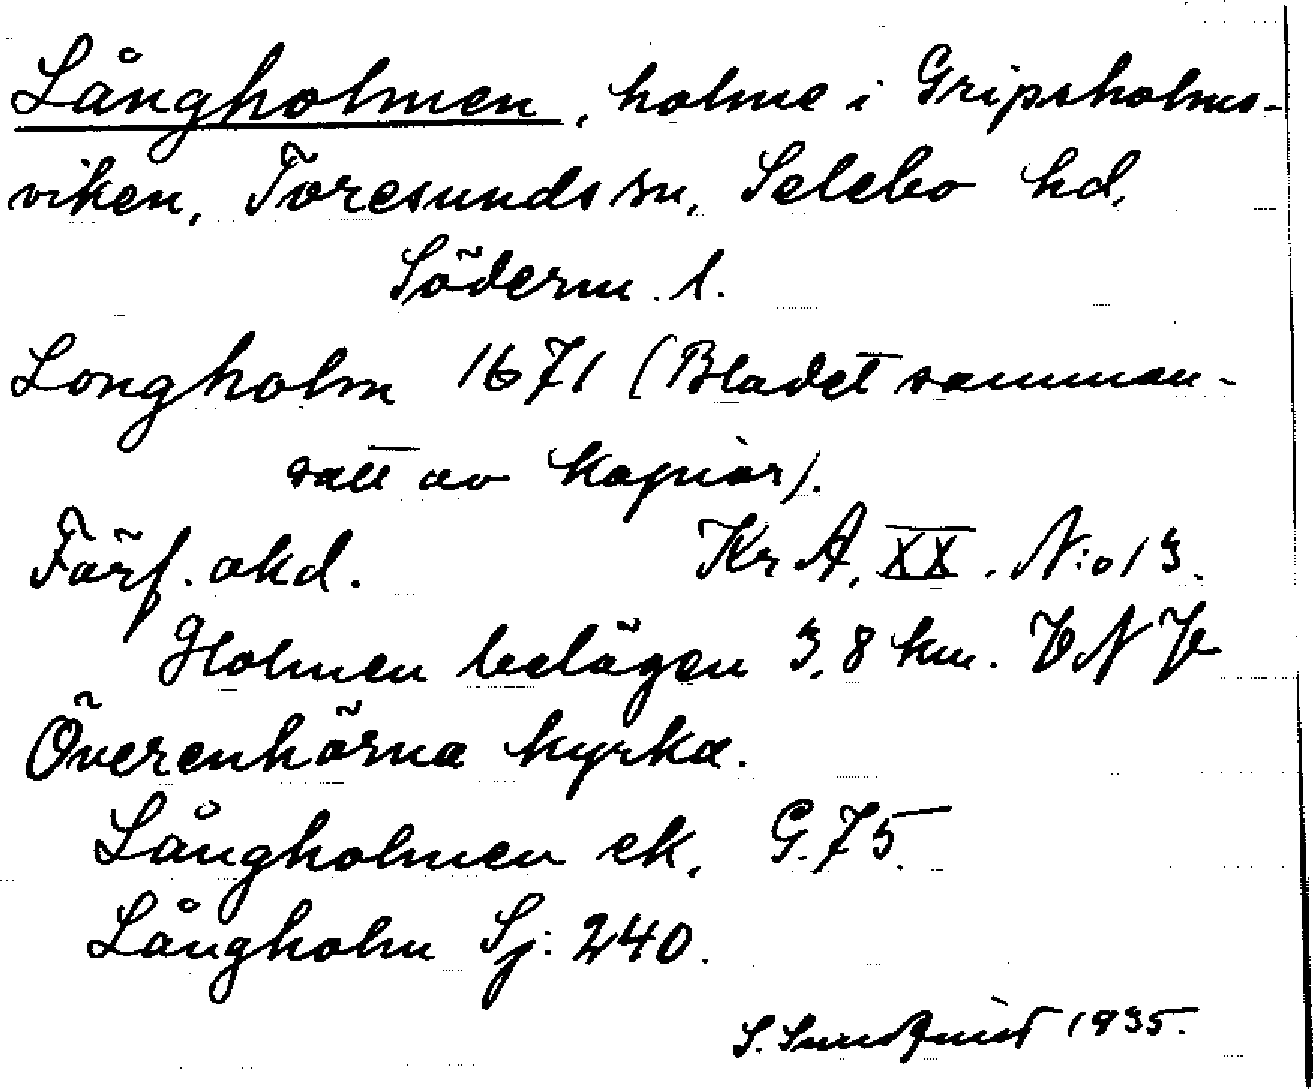 Långholmen, holme i Gripsholms-
viken, Toresunds sn, Selebo hd,
Söderm. l.
Longholm 1671 (Bladet samman-
satt av kopior).
Förf. okd. KrA, XX. N:o 13.
Holmen belägen 3,8 km. VNV
Överenhörna kyrka.
Långholmen ek. G.75.
Långholm Sj: 240.
S. Sundquist 1935.